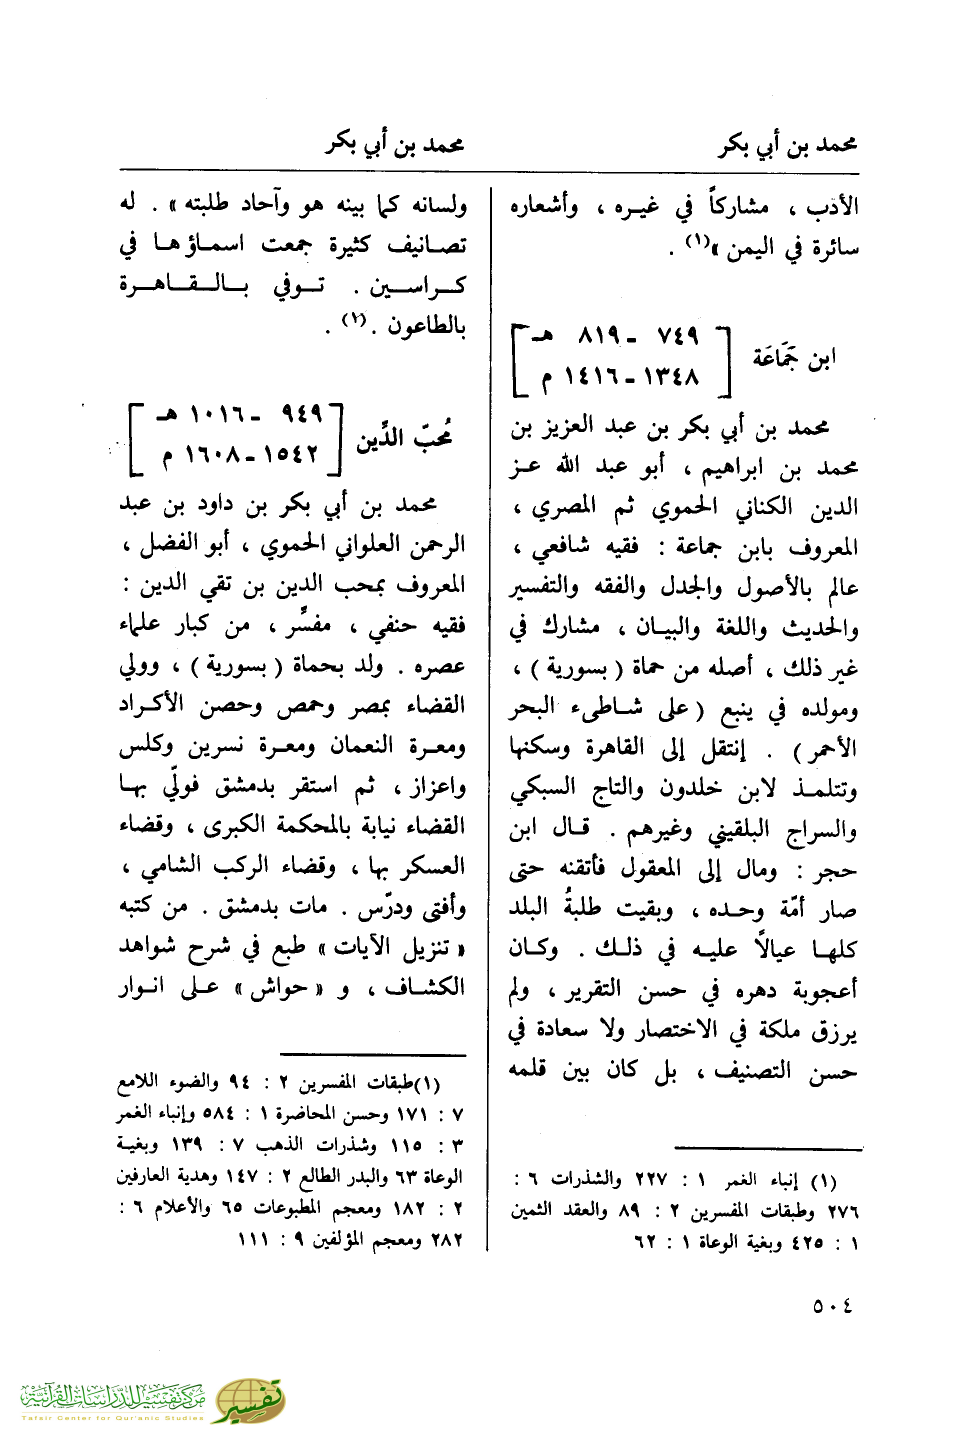 محمد بن أبي بكر
محمد بن أبي بكر
الأدب ، مشاركاً في غيره ، وأشعاره
سائرة في اليمن »(١) .
ابن جَمَاعَة
[ ٧٤٩ - ٨١٩ هـ
١٣٤٨ - ١٤١٦ م ]
محمد بن أبي بكر بن عبد العزيز بن
محمد بن ابراهيم ، أبو عبد الله عز
الدين الكناني الحموي ثم المصري ،
المعروف بابن جماعة : فقيه شافعي ،
عالم بالأصول والجدل والفقه والتفسير
والحديث واللغة والبيان ، مشارك في
غير ذلك ، أصله من حماة ( بسورية ) ،
ومولده في ينبع ( على شاطىء البحر
الأحمر ) . إنتقل إلى القاهرة وسكنها
وتتلمذ لابن خلدون والتاج السبكي
والسراج البلقيني وغيرهم . قال ابن
حجر : ومال إلى المعقول فأتقنه حتى
صار أمّة وحده ، وبقيت طلبةُ البلد
كلها عيالاً عليه في ذلك . وكان
أعجوبة دهره في حسن التقرير ، ولم
يرزق ملكة في الاختصار ولا سعادة في
حسن التصنيف ، بل كان بين قلمه
(١) إنباء الغمر ١ : ٢٢٧ والشذرات ٦ :
٢٧٦ وطبقات المفسرين ٢ : ٨٩ والعقد الثمين
١ : ٤٢٥ وبغية الوعاة ١ : ٦٢
ولسانه كما بينه هو وآحاد طلبته » . له
تصانيف كثيرة جمعت اسماؤها في
كراسين . توفي بالقاهرة
بالطاعون .(١) .
مُحبّ الدِّين
[ ٩٤٩ - ١٠١٦ هـ
١٥٤٢ - ١٦٠٨ م ]
محمد بن أبي بكر بن داود بن عبد
الرحمن العلواني الحموي ، أبو الفضل ،
المعروف بمحب الدين بن تقي الدين :
فقيه حنفي ، مفسِّر ، من كبار علماء
عصره . ولد بحماة ( بسورية ) ، وولي
القضاء بمصر وحمص وحصن الأكراد
ومعرة النعمان ومعرة نسرين وكلس
واعزاز ، ثم استقر بدمشق فولّي بها
القضاء نيابة بالمحكمة الكبرى ، وقضاء
العسكر بها ، وقضاء الركب الشامي ،
وأفتى ودرّس . مات بدمشق . من كتبه
« تنزيل الآيات » طبع في شرح شواهد
الكشاف ، و « حواش » على انوار
(١)طبقات المفسرين ٢ : ٩٤ والضوء اللامع
٧ : ١٧١ وحسن المحاضرة ١ : ٥٨٤ وإنباء الغمر
٣ : ١١٥ وشذرات الذهب ٧ : ١٣٩ وبغية
الوعاة ٦٣ والبدر الطالع ٢ : ١٤٧ وهدية العارفين
٢ : ١٨٢ ومعجم المطبوعات ٦٥ والأعلام ٦ :
٢٨٢ ومعجم المؤلفين ٩ : ١١١
٥٠٤
مركز تفسير للدراسات القرآنية
Tafsir Center for Qur'anic Studies
تفسير